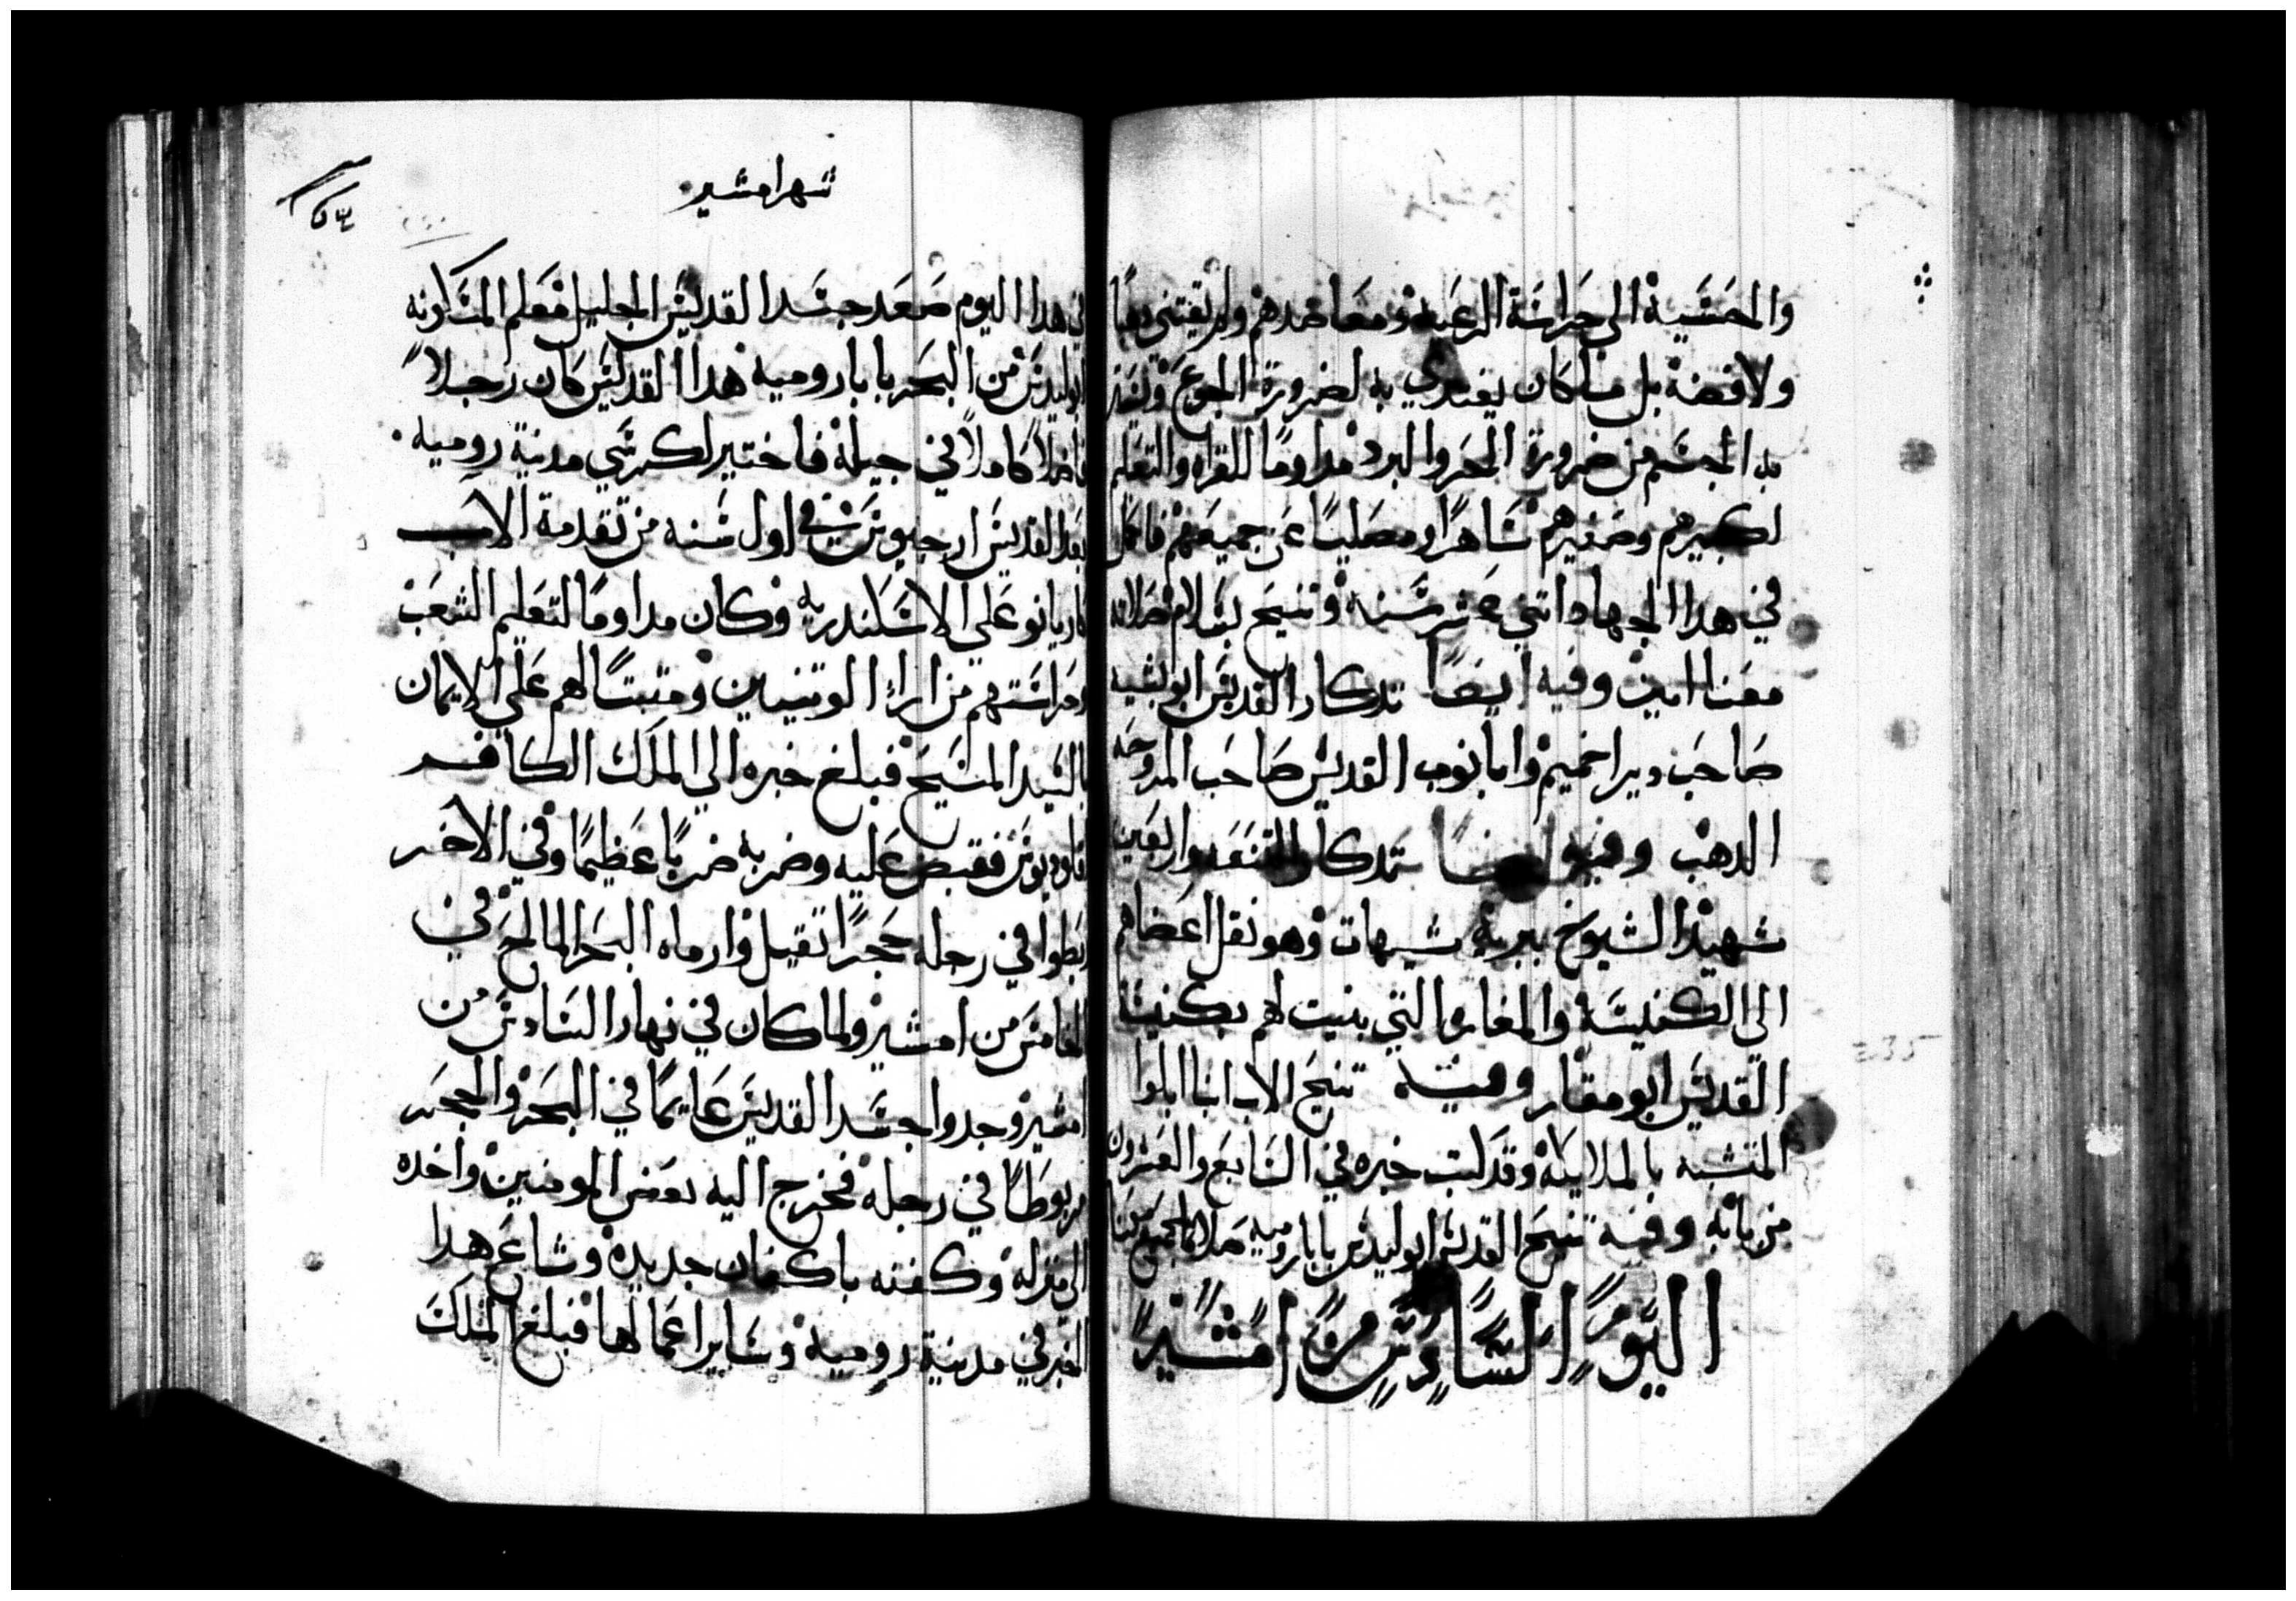 والمحتسبة الى حراسة الرعية ومعاضدهم ولم يقتني دهبا
ولا فضة بل ما كان يغتدي به لضرورة الجوع ويستر
به الجسم من ضرورة الحر والبرد مداوما للقراه والتعلم
لكبيرهم وصغيرهم ساهرا ومصليا عن جميعهم فاكمل
في هدا الجهاد اتني عشر سنه وتنيح بسلام صلاته
معنا امين وفيه ايضا تدكار القديس ابو بشيه
صاحب دير اخميم وابا نوب القديس صاحب المروحه
الدهب وفيه ايضا تدكار التسعه واربعين
شهيدا الشيوخ ببرية شيهات وهو نقل اعضاهم
الى الكنيسة والمغاره التي بنيت لهم بكنيسة
القديس ابو مقار وفيه تنيح الاب انبا ابلوا
المتشبه بالملايكة وقد كتب خبره في السابع والعشرون
من بابه وفيه تنيح القديس ابوليدس بابا رومية صلاته تحفظنا
اليوم السادس من امشير
شهر امشير
٥٤
في هدا اليوم صعد جسد القديس الجليل معلم المسكونه
ابوليدس من البحر بابا رومية هدا القديس كان رجلا
فاضلا كاملا في جيله فاختير لكرسي مدينة رومية
بعد القديس ارجيوس في اول سنه من تقدمة الاب
كاريانو علي الاسكندرية وكان مداوما لتعليم الشعب
وحراستهم من اراء الوتنيين ومتبتا لهم علي الايمان
بالسيد المسيح فبلغ خبره الي الملك الكافر
قلوديوس فقبض عليه وضربه ضربا عظيما وفي الاخر
ربطوا في رجله حجرا تقيل وارماه البحر المالح في
الخامس من امشير ولما كان في نهار السادس من
امشير وجدوا جسد القديس عايما في البحر والحجر
مربوطا في رجله فخرج اليه بعض المومنين واخده
الى منزله وكفنه باكفان جديده وشاع هدا
الخبر في مدينة رومية وساير اعمالها فبلغ الملك